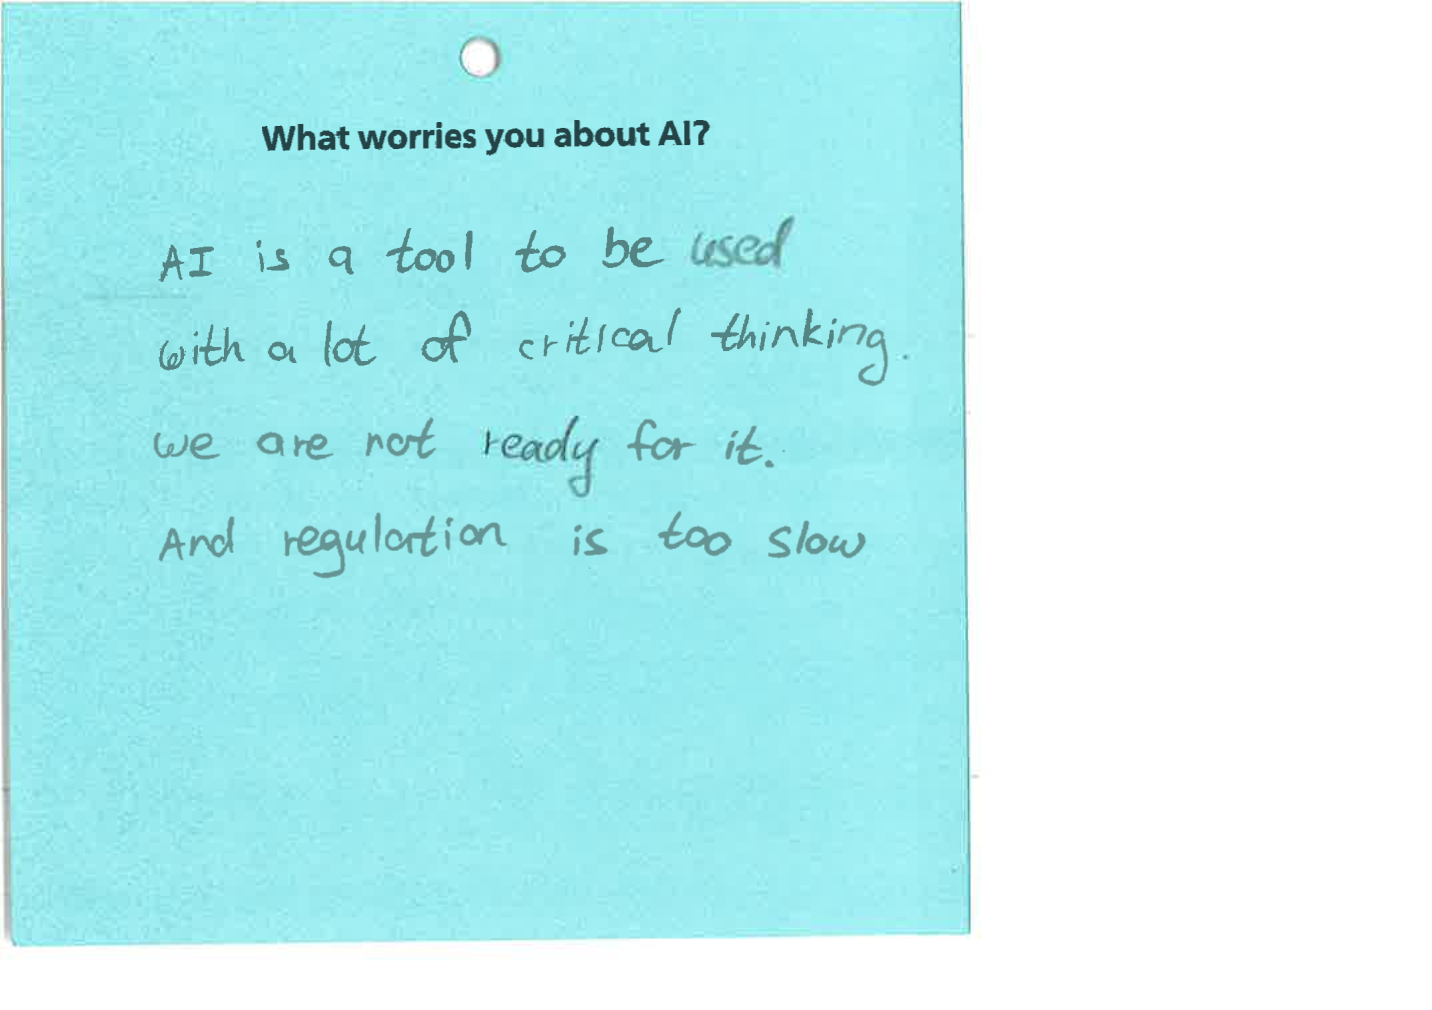 What worries you about AI?
AI is a tool to be used
with a lot of critical thinking.
we are not ready for it.
And regulation is too slow